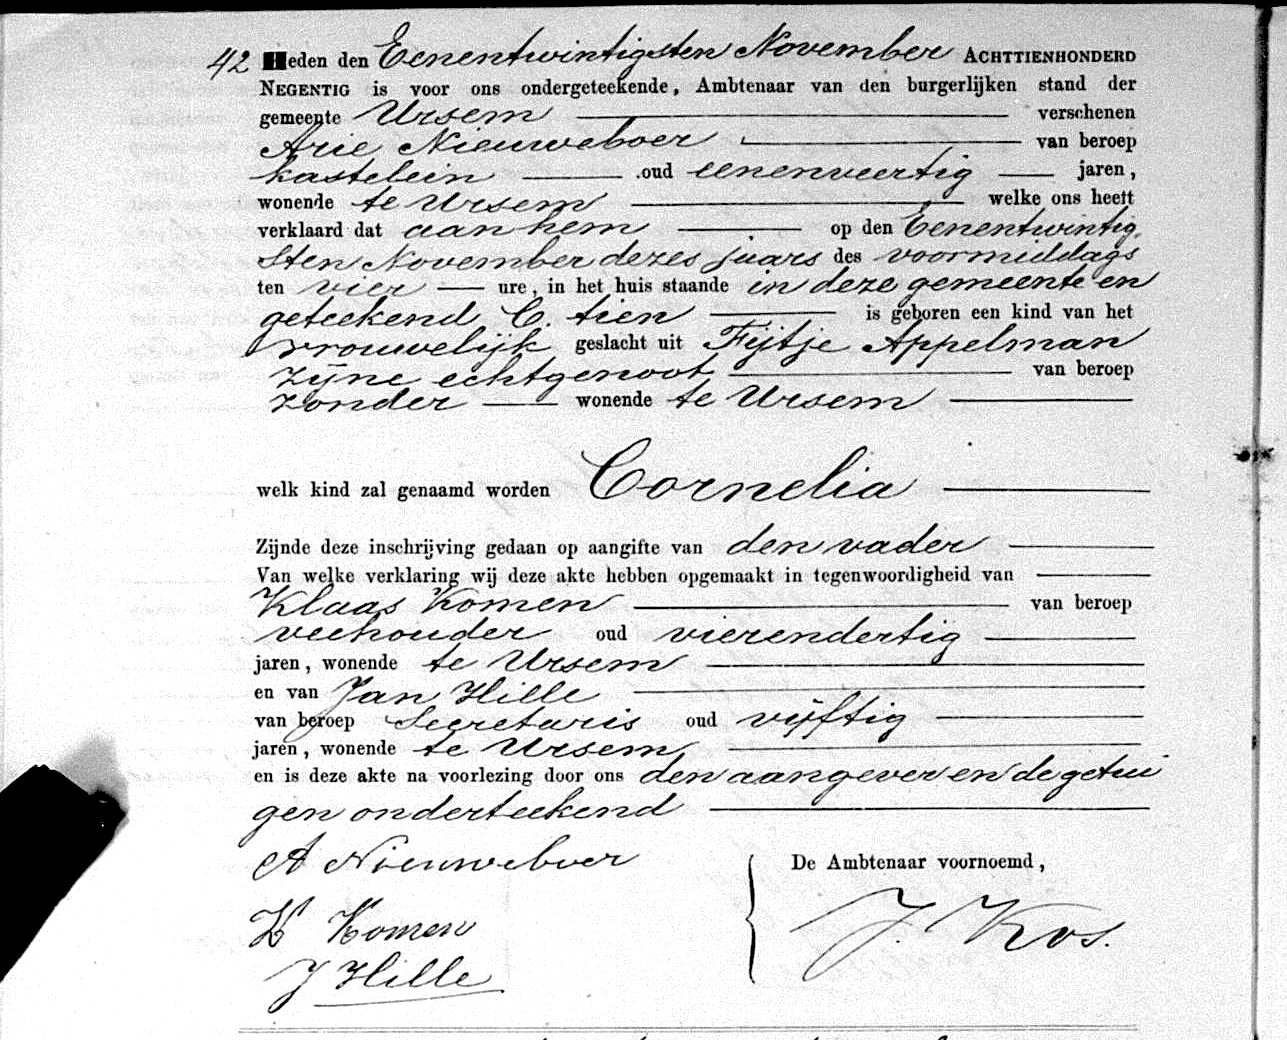 42 Heden den Eenentwintigsten November ACHTTIENHONDERD
NEGENTIG is voor ons ondergeteekende, Ambtenaar van den burgerlijken stand der
gemeente Ursem verschenen
Arie Nieuweboer van beroep
kastelein oud eenenveertig jaren,
wonende te Ursem welke ons heeft
verklaard dat aan hem op den Eenentwintig
sten November dezes jaars des voormiddags
ten vier ure, in het huis staande in deze gemeente en
geteekend C. tien is geboren een kind van het
vrouwelijk geslacht uit Fijtje Appelman
zijne echtgenoot van beroep
zonder wonende te Ursem
welk kind zal genaamd worden Cornelia
Zijnde deze inschrijving gedaan op aangifte van den vader
Van welke verklaring wij deze akte hebben opgemaakt in tegenwoordigheid van
Klaas Komen van beroep
veehouder oud vierendertig
jaren, wonende te Ursem
en van Jan Hille
van beroep Secretaris oud vijftig
jaren, wonende te Ursem
en is deze akte na voorlezing door ons den aangever en de getui
gen onderteekend
A Nieuweboer
De Ambtenaar voornoemd,
K Komen
J. Kos.
J Hille